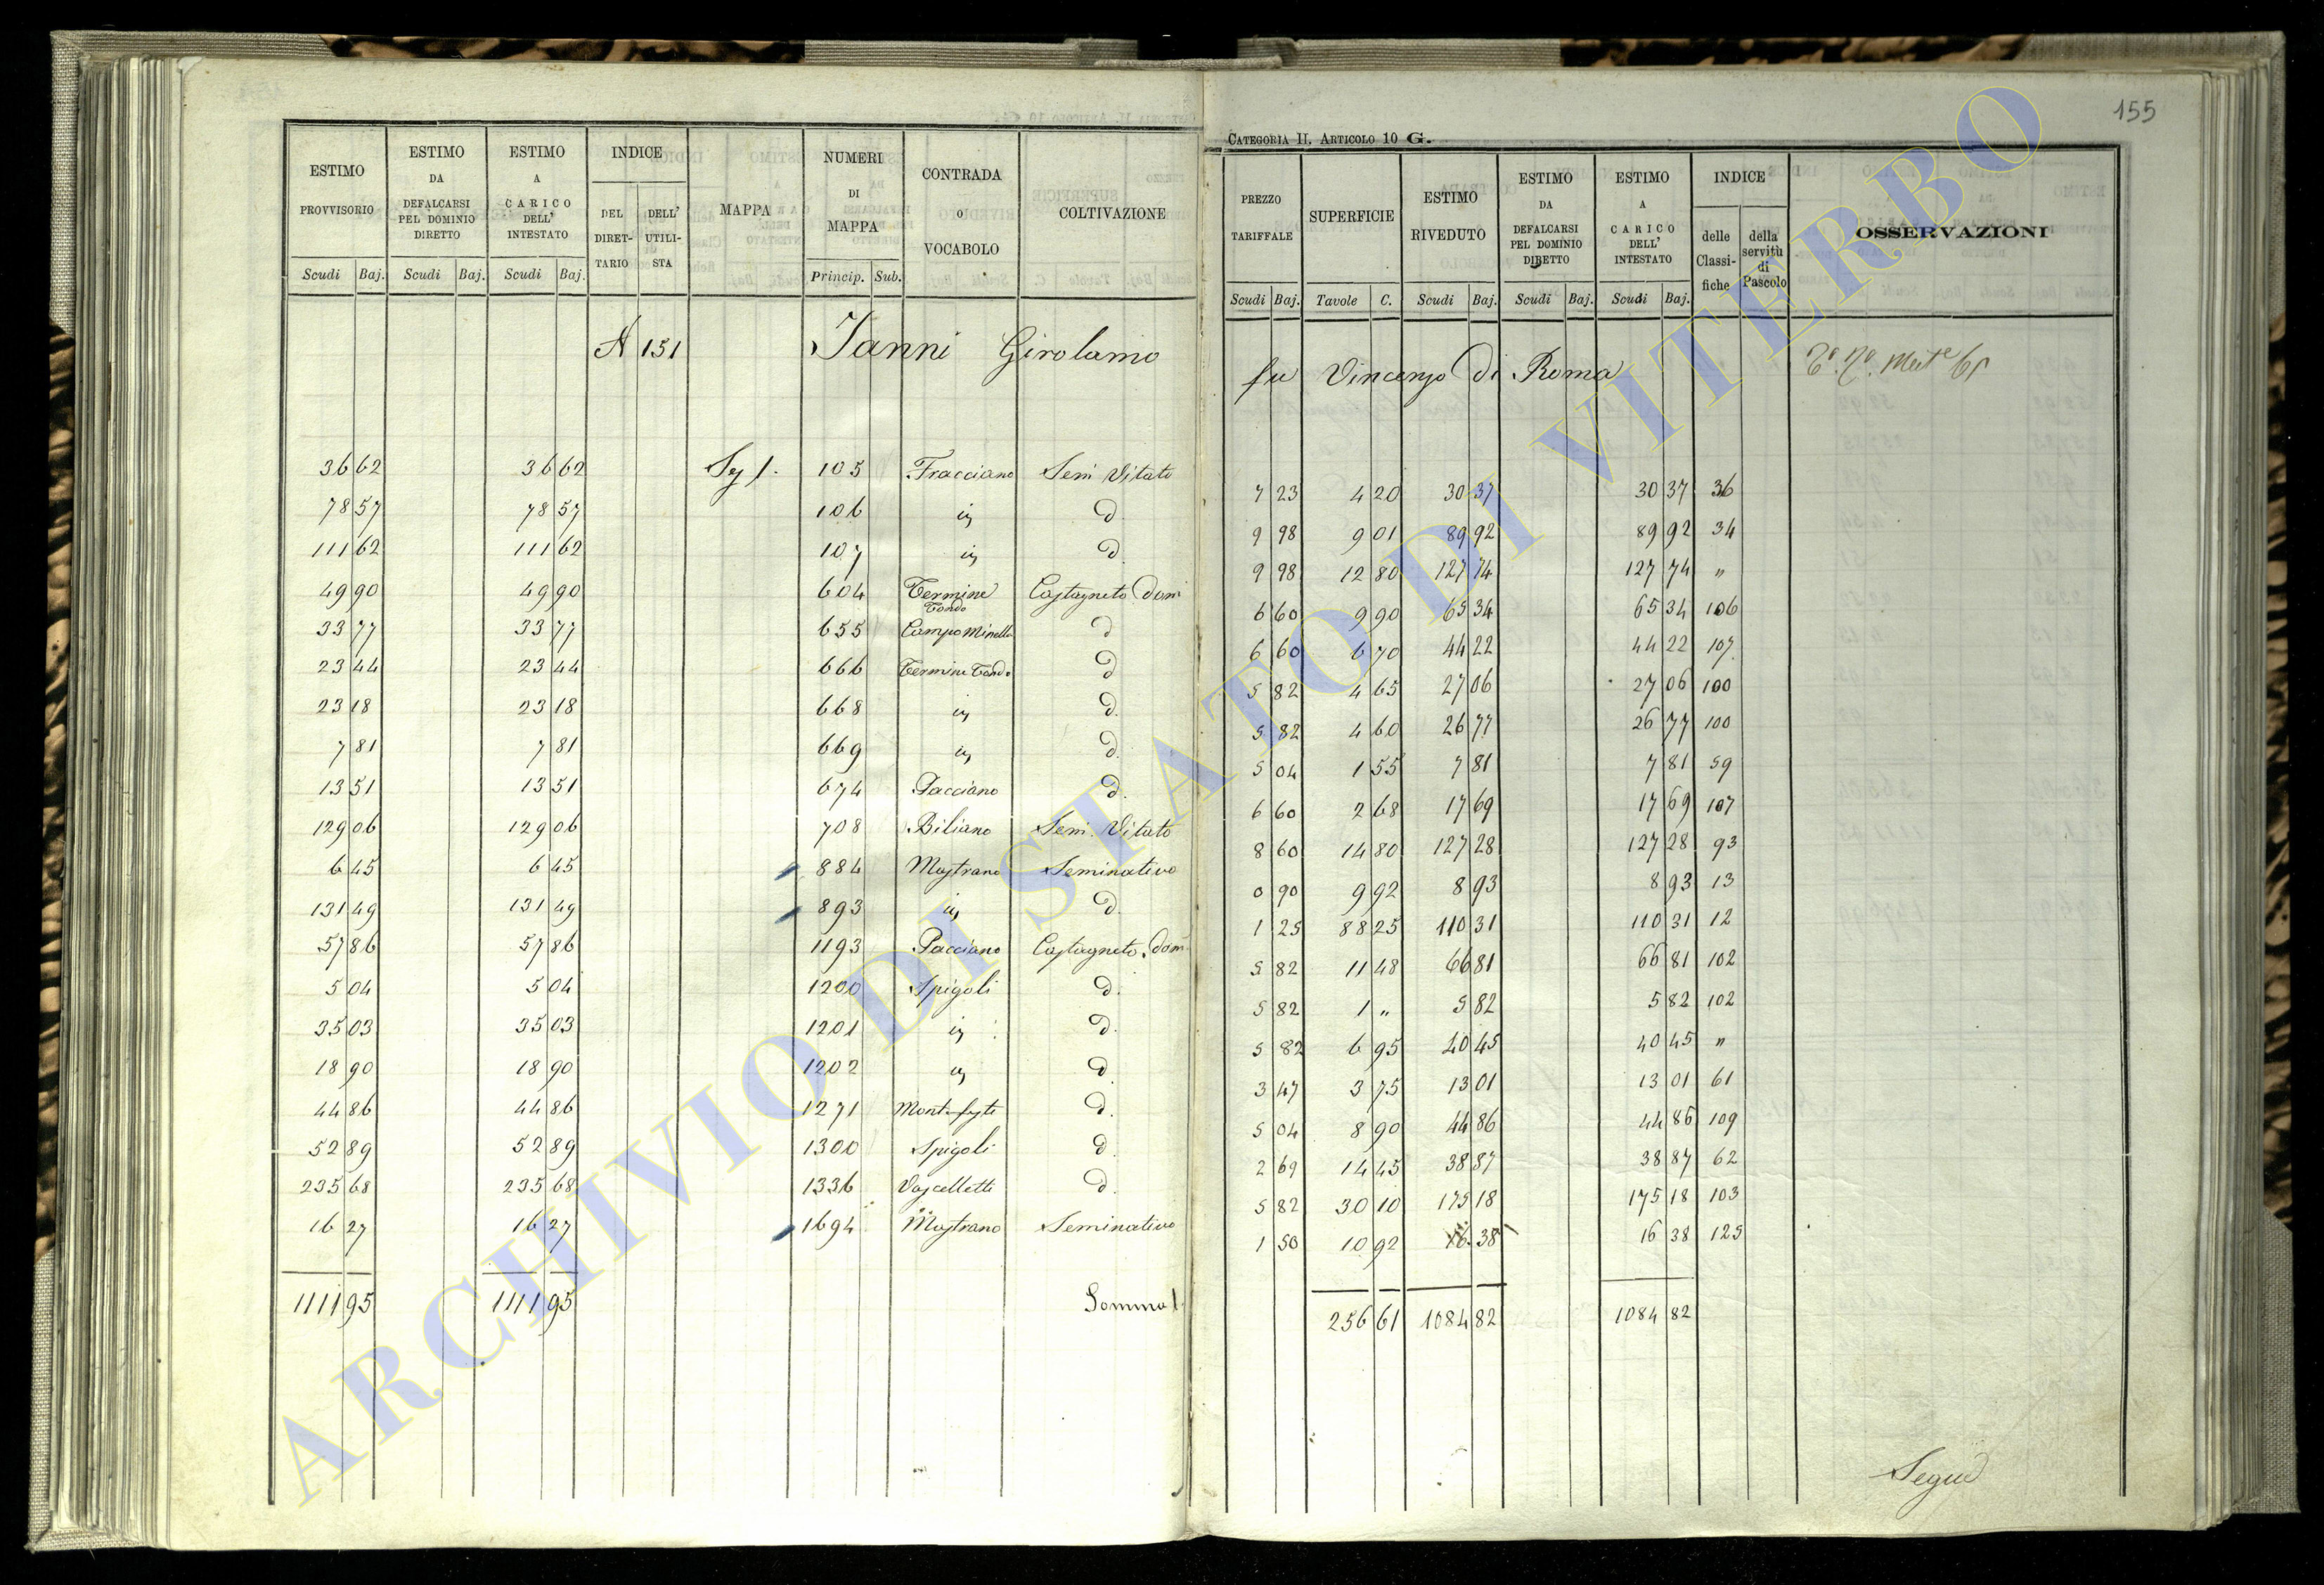 155
CATEGORIA II. ARTICOLO 10 G.
ESTIMO PROVVISORIO Scudi Baj. ESTIMO DA DEFALCARSI PEL DOMINIO DIRETTO Scudi Baj. ESTIMO A CARICO DELL' INTESTATO Scudi Baj. INDICE DEL DIRET-TARIO DELL' UTILI-STA MAPPA NUMERI DI MAPPA Princip. Sub. CONTRADA O VOCABOLO COLTIVAZIONE
PREZZO TARIFFALE Scudi Baj. SUPERFICIE Tavole C. ESTIMO RIVEDUTO Scudi Baj. ESTIMO DA DEFALCARSI PEL DOMINIO DIRETTO Scudi Baj. ESTIMO A CARICO DELL' INTESTATO Scudi Baj. INDICE delle Classi-fiche della servitù di Pascolo OSSERVAZIONI
A 151 Ianni Girolamo fu Vincenzo di Roma
36 62 36 62 105 Fracciano Sem Vitato 7 23 4 20 30 37 30 37 36
78 57 78 57 106 id 9 98 9 01 89 92 89 92 34
111 62 111 62 107 id d 9 98 12 80 127 74 127 74 "
49 90 49 90 604 Termine Tondo Castagneto Dom 6 60 9 90 65 34 65 34 106
33 77 33 77 655 Campo Minello d 6 60 6 70 44 22 44 22 107
23 44 23 44 666 Termine Tondo d 5 82 4 65 27 06 27 06 100
23 18 23 18 668 id d. 5 82 4 60 26 77 26 77 100
7 81 7 81 669 id d 5 04 1 55 7 81 7 81 59
13 51 13 51 674 Pacciano d. 6 60 2 68 17 69 17 69 107
129 06 129 06 708 Biliano Sem. Vitato 8 60 14 80 127 28 127 28 93
6 45 6 45 884 Mastrano Seminativo 0 90 9 92 8 93 8 93 13
131 49 131 49 893 id d. 1 25 88 25 110 31 110 31 12
57 86 57 86 1193 Pacciano Castagneto. Dom 5 82 11 48 66 81 66 81 102
5 04 5 04 1200 Spigoli d. 5 82 1 " 5 82 5 82 102
35 03 35 03 1201 id d. 5 82 6 95 40 45 40 45 "
18 90 18 90 1202 id d 3 47 3 75 13 01 13 01 61
44 86 44 86 1271 d. 5 04 8 90 44 86 44 86 109
52 89 52 89 1300 Spigoli d. 2 69 14 45 38 87 38 87 62
235 68 235 68 1336 Vascelletti d. 5 82 30 10 175 18 175 18 103
16 27 16 27 1694 Mastrano Seminativo 1 50 10 92 16 38 16 38 125
1111 95 1111 95 Somma 256 61 1084 82 1084 82
Segue
ARCHIVIO DI STATO DI VITERBO